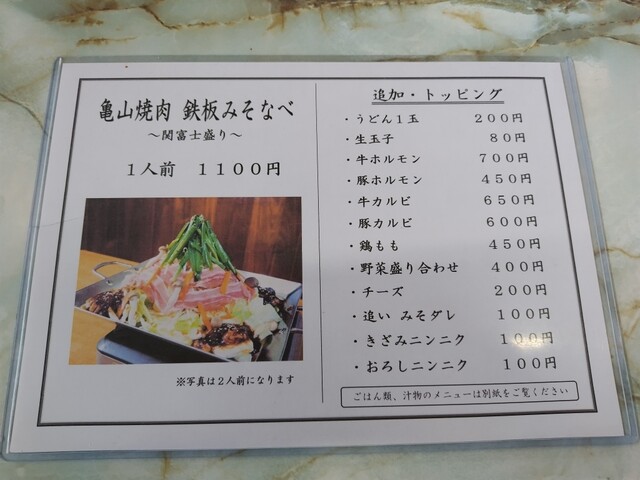 亀山焼肉 鉄板みそなべ
〜関富士盛り〜
1人前 1100円
※写真は2人前になります
追加・トッピング
・うどん1玉 200円
・生玉子 80円
・牛ホルモン 700円
・豚ホルモン 450円
・牛カルビ 650円
・豚カルビ 600円
・鶏もも 450円
・野菜盛り合わせ 400円
・チーズ 200円
・追い みそダレ 100円
・きざみニンニク 100円
・おろしニンニク 100円
ごはん類、汁物のメニューは別紙をご覧ください